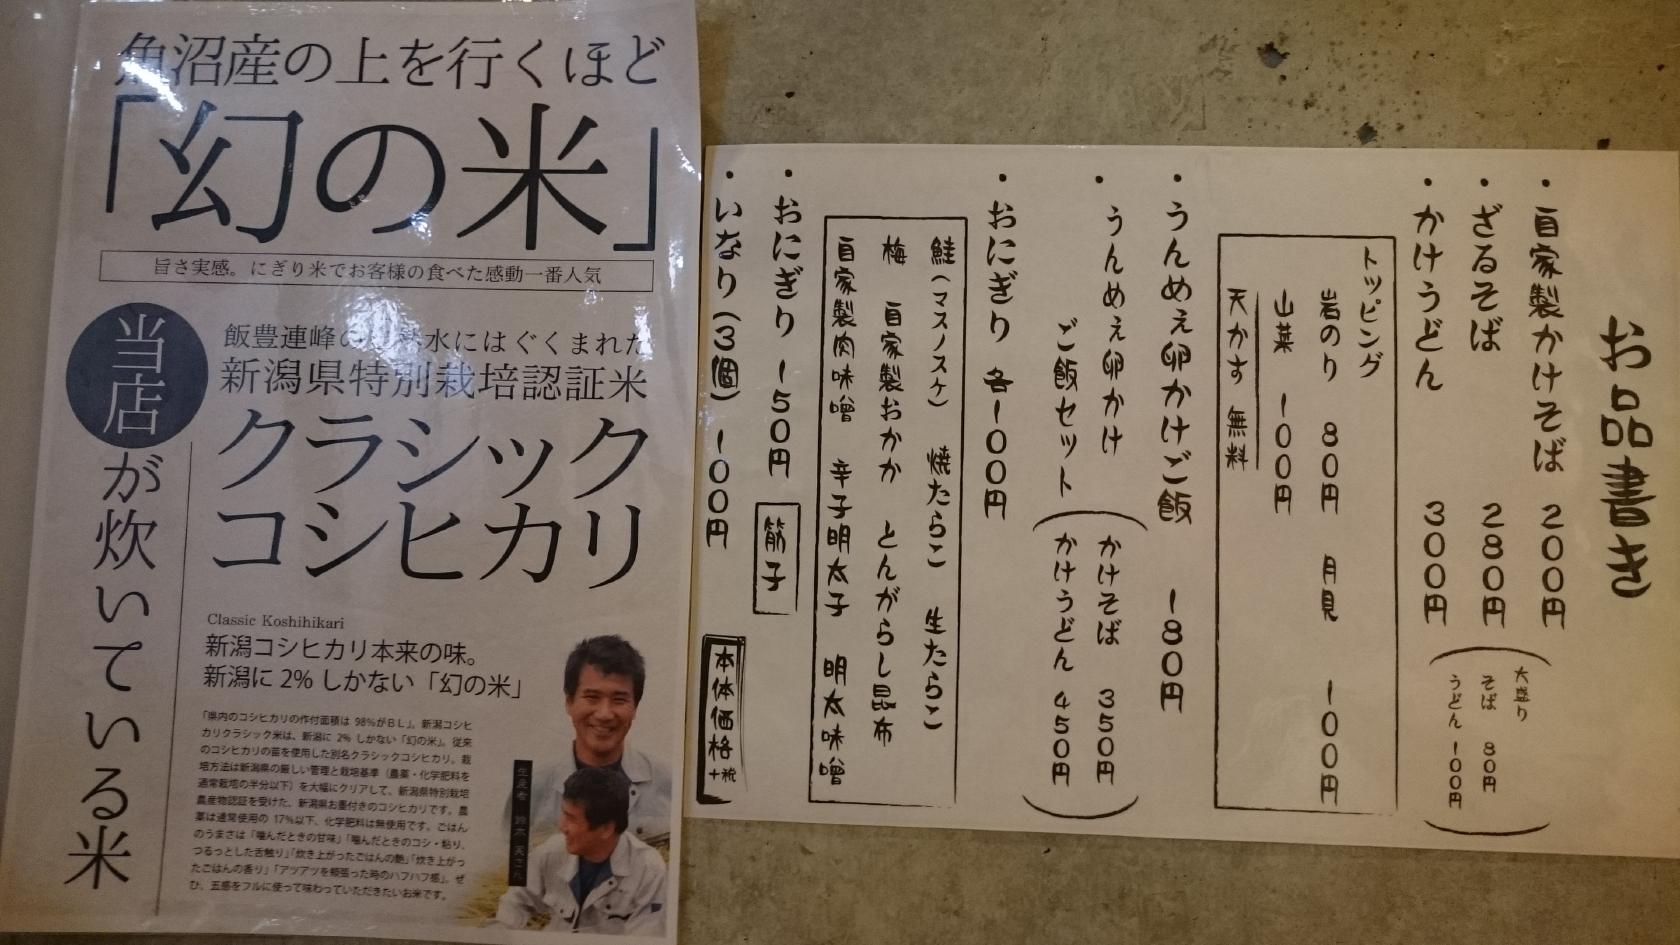 魚沼産の上を行くほど
「幻の米」
旨さ実感。にぎり米でお客様の食べた感動一番人気
当店が炊いている米
飯豊連峰の
水にはぐくまれた
新潟県特別栽培認証米
クラシック
コシヒカリ
Classic Koshihikari
新潟コシヒカリ本来の味。
新潟に 2% しかない「幻の米」
「県内のコシヒカリの作付面積は 98%がBL」。新潟コシヒ
カリクラシック米は、新潟に 2% しかない「幻の米」。従来
のコシヒカリの苗を使用した別名クラシックコシヒカリ。栽
培方法は新潟県の厳しい管理と栽培基準（農薬・化学肥料を
通常栽培の半分以下）を大幅にクリアして、新潟県特別栽培
農産物認証を受けた、新潟県お墨付きのコシヒカリです。農
薬は通常使用の 17%以下、化学肥料は無使用です。ごはん
のうまさは「噛んだときの甘味」「噛んだときのコシ・粘り、
つるっとした舌触り」「炊き上がったごはんの艶」「炊き上がっ
たごはんの香り」「アツアツを頬張った時のハフハフ感」。ぜ
ひ、五感をフルに使って味わっていただきたいお米です。
生産者 鈴木
お品書き
・自家製かけそば 200円
・ざるそば 280円
・かけうどん 300円
（大盛り
そば 80円
うどん 100円）
トッピング
岩のり 80円 月見 100円
山菜 100円
天かす 無料
・うんめぇ卵かけご飯 180円
・うんめぇ卵かけ
ご飯セット
（かけそば 350円
かけうどん 450円）
・おにぎり 各100円
鮭（マスノスケ） 焼たらこ 生たらこ
梅 自家製おかか とんがらし昆布
自家製肉味噌 辛子明太子 明太味噌
・おにぎり 150円 筋子
・いなり（3個） 100円
本体価格+税